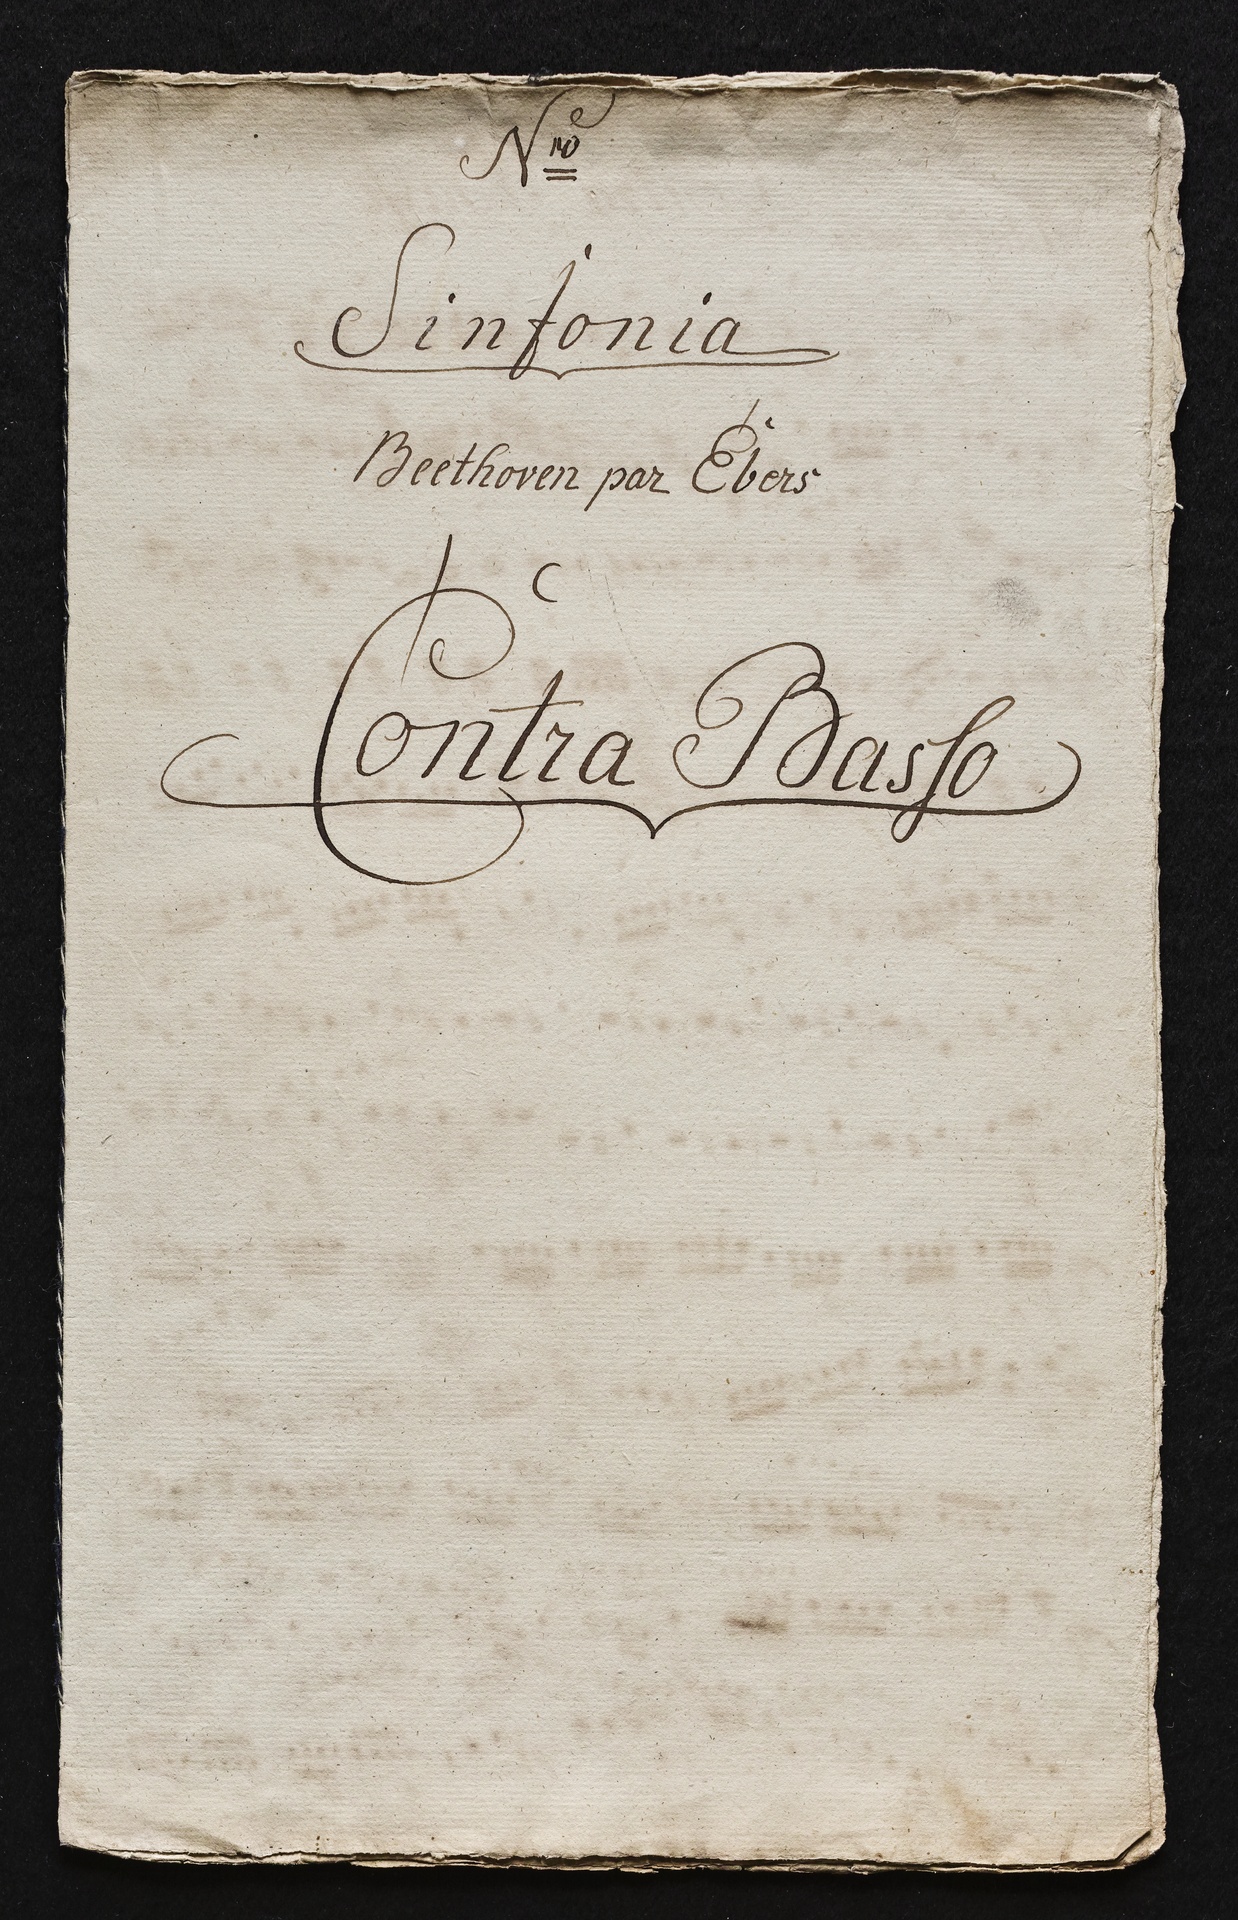 Nro
Sinfonia
Beethoven par Ebers
Contra Basso